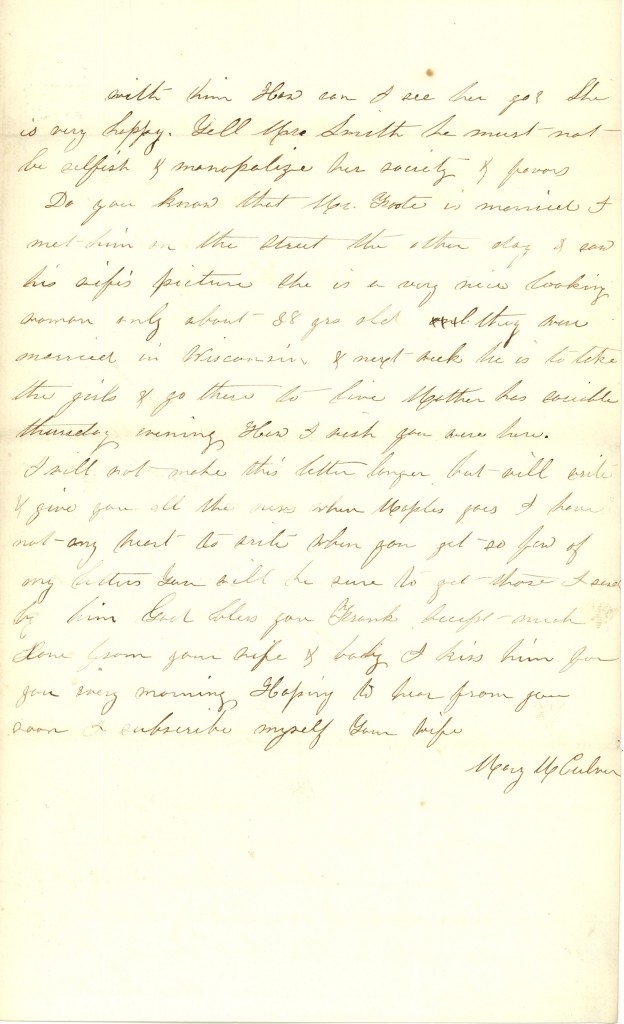 with him How can I see her go? She
is very happy. Tell Mrs Smith he must not
be selfish & monopolize her society & favors
Do you know that Mr. Foote is married I
met him on the street the other day & saw
his wife's picture she is a very nice looking
woman only about 28 yrs old they were
married in Wisconsin & next week he is to take
the girls & go there to live Mother has sociable
thursday evening How I wish you were here.
I will not make this letter longer but will write
& give you all the news when Naples goes I have
not any heart to write when you get so few of
my letters You will be sure to get those I send
by him God bless you Frank Accept much
Love from your wife & baby I kiss him for
you every morning Hoping to hear from you
soon I subscribe myself Your wife
Mary M Culver